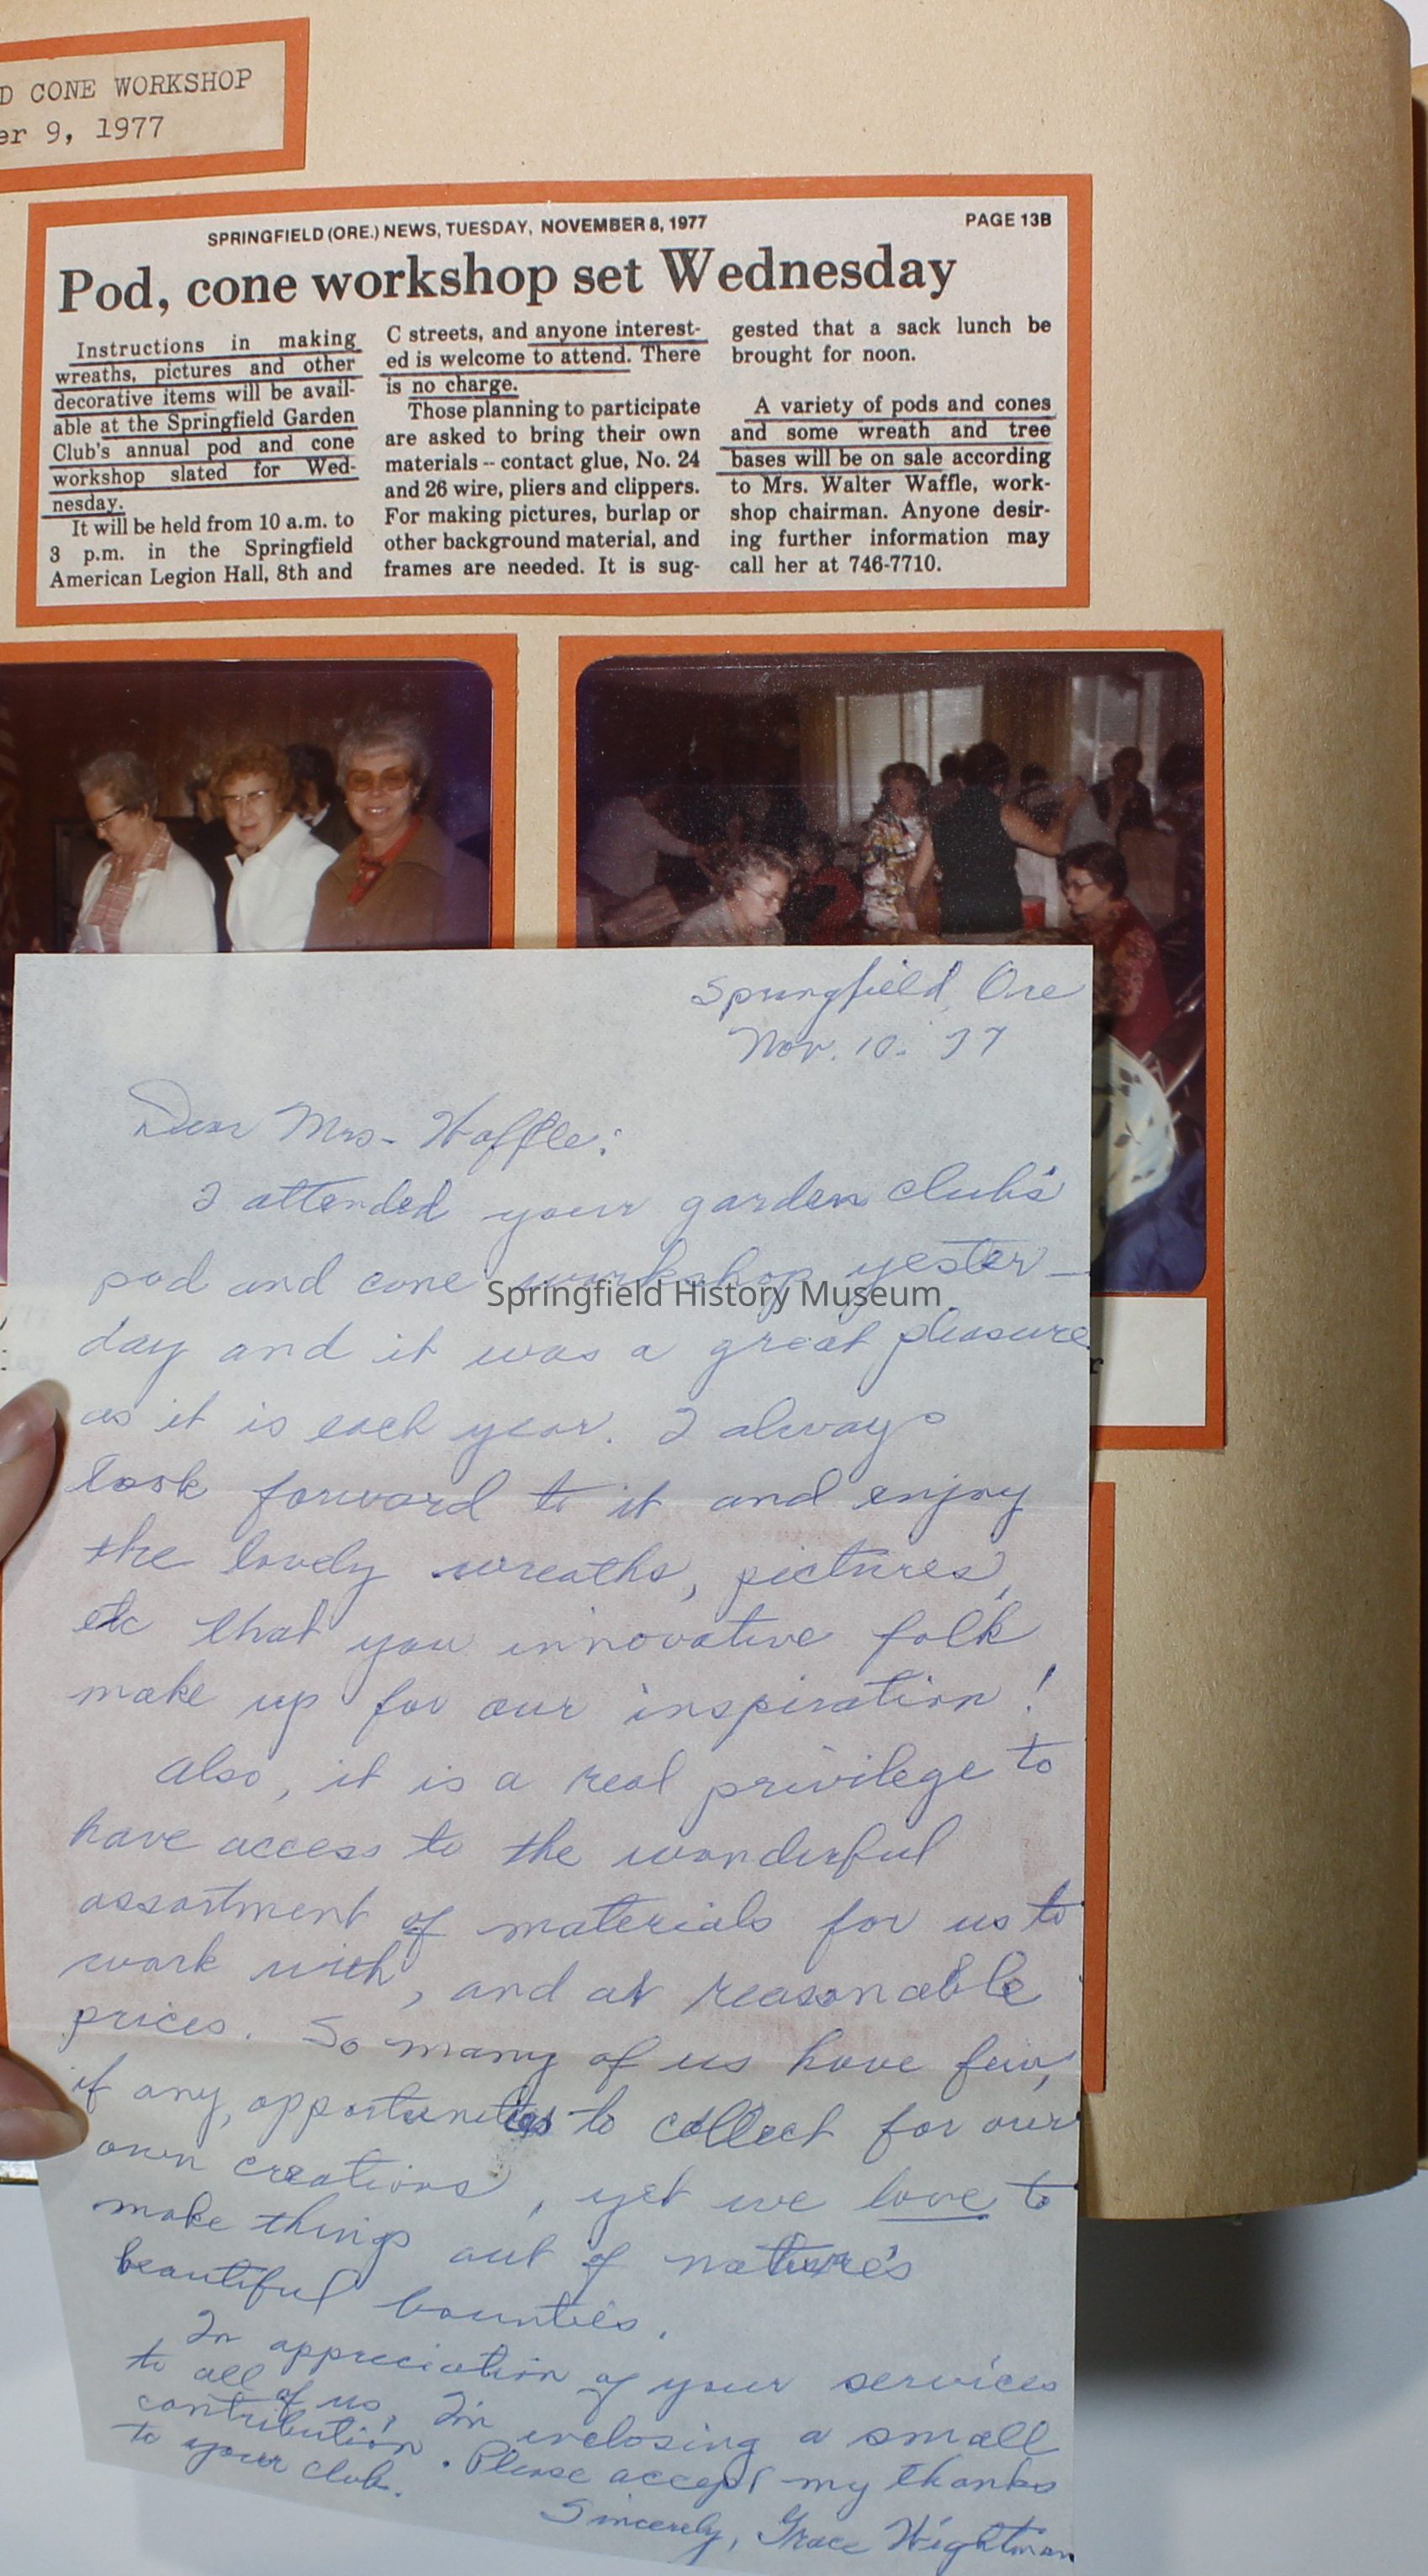 D CONE WORKSHOP
er 9, 1977
SPRINGFIELD (ORE.) NEWS, TUESDAY, NOVEMBER 8, 1977 PAGE 13B
Pod, cone workshop set Wednesday
Instructions in making
wreaths, pictures and other
decorative items will be avail-
able at the Springfield Garden
Club's annual pod and cone
workshop slated for Wed-
nesday.
It will be held from 10 a.m. to
3 p.m. in the Springfield
American Legion Hall, 8th and
C streets, and anyone interest-
ed is welcome to attend. There
is no charge.
Those planning to participate
are asked to bring their own
materials -- contact glue, No. 24
and 26 wire, pliers and clippers.
For making pictures, burlap or
other background material, and
frames are needed. It is sug-
gested that a sack lunch be
brought for noon.
A variety of pods and cones
and some wreath and tree
bases will be on sale according
to Mrs. Walter Waffle, work-
shop chairman. Anyone desir-
ing further information may
call her at 746-7710.
Springfield, Ore
Nov. 10. 77
Dear Mrs. Waffle:
I attended your garden club's
pod and cone workshop yester-
day and it was a great pleasure
as it is each year. I always
look forward to it and enjoy
the lovely wreaths, pictures,
etc that you innovative folk
make up for our inspiration!
Also, it is a real privilege to
have access to the wonderful
assortment of materials for us to
work with, and at reasonable
prices. So many of us have few,
if any, opportunities to collect for our
own creations, yet we love to
make things out of nature's
beautiful bounties.
In appreciation of your services
to all of us, I'm enclosing a small
contribution. Please accept my thanks
to your club.
Sincerely, Grace Wightman
Springfield History Museum
r